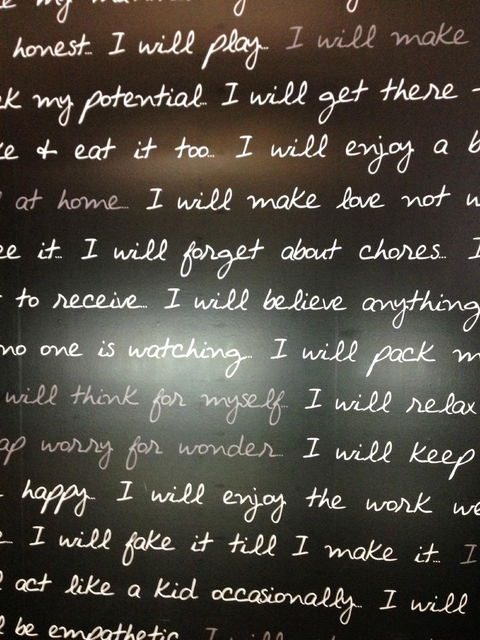 honest... I will play... I will make
my potential... I will get there -
& eat it too... I will enjoy a
at home... I will make love not
it... I will forget about chores... I
to receive... I will believe anything
no one is watching... I will pack
will think for myself... I will relax
worry for wonder... I will keep
happy... I will enjoy the work
I will fake it till I make it... I
act like a kid occasionally... I will
be empathetic... I will